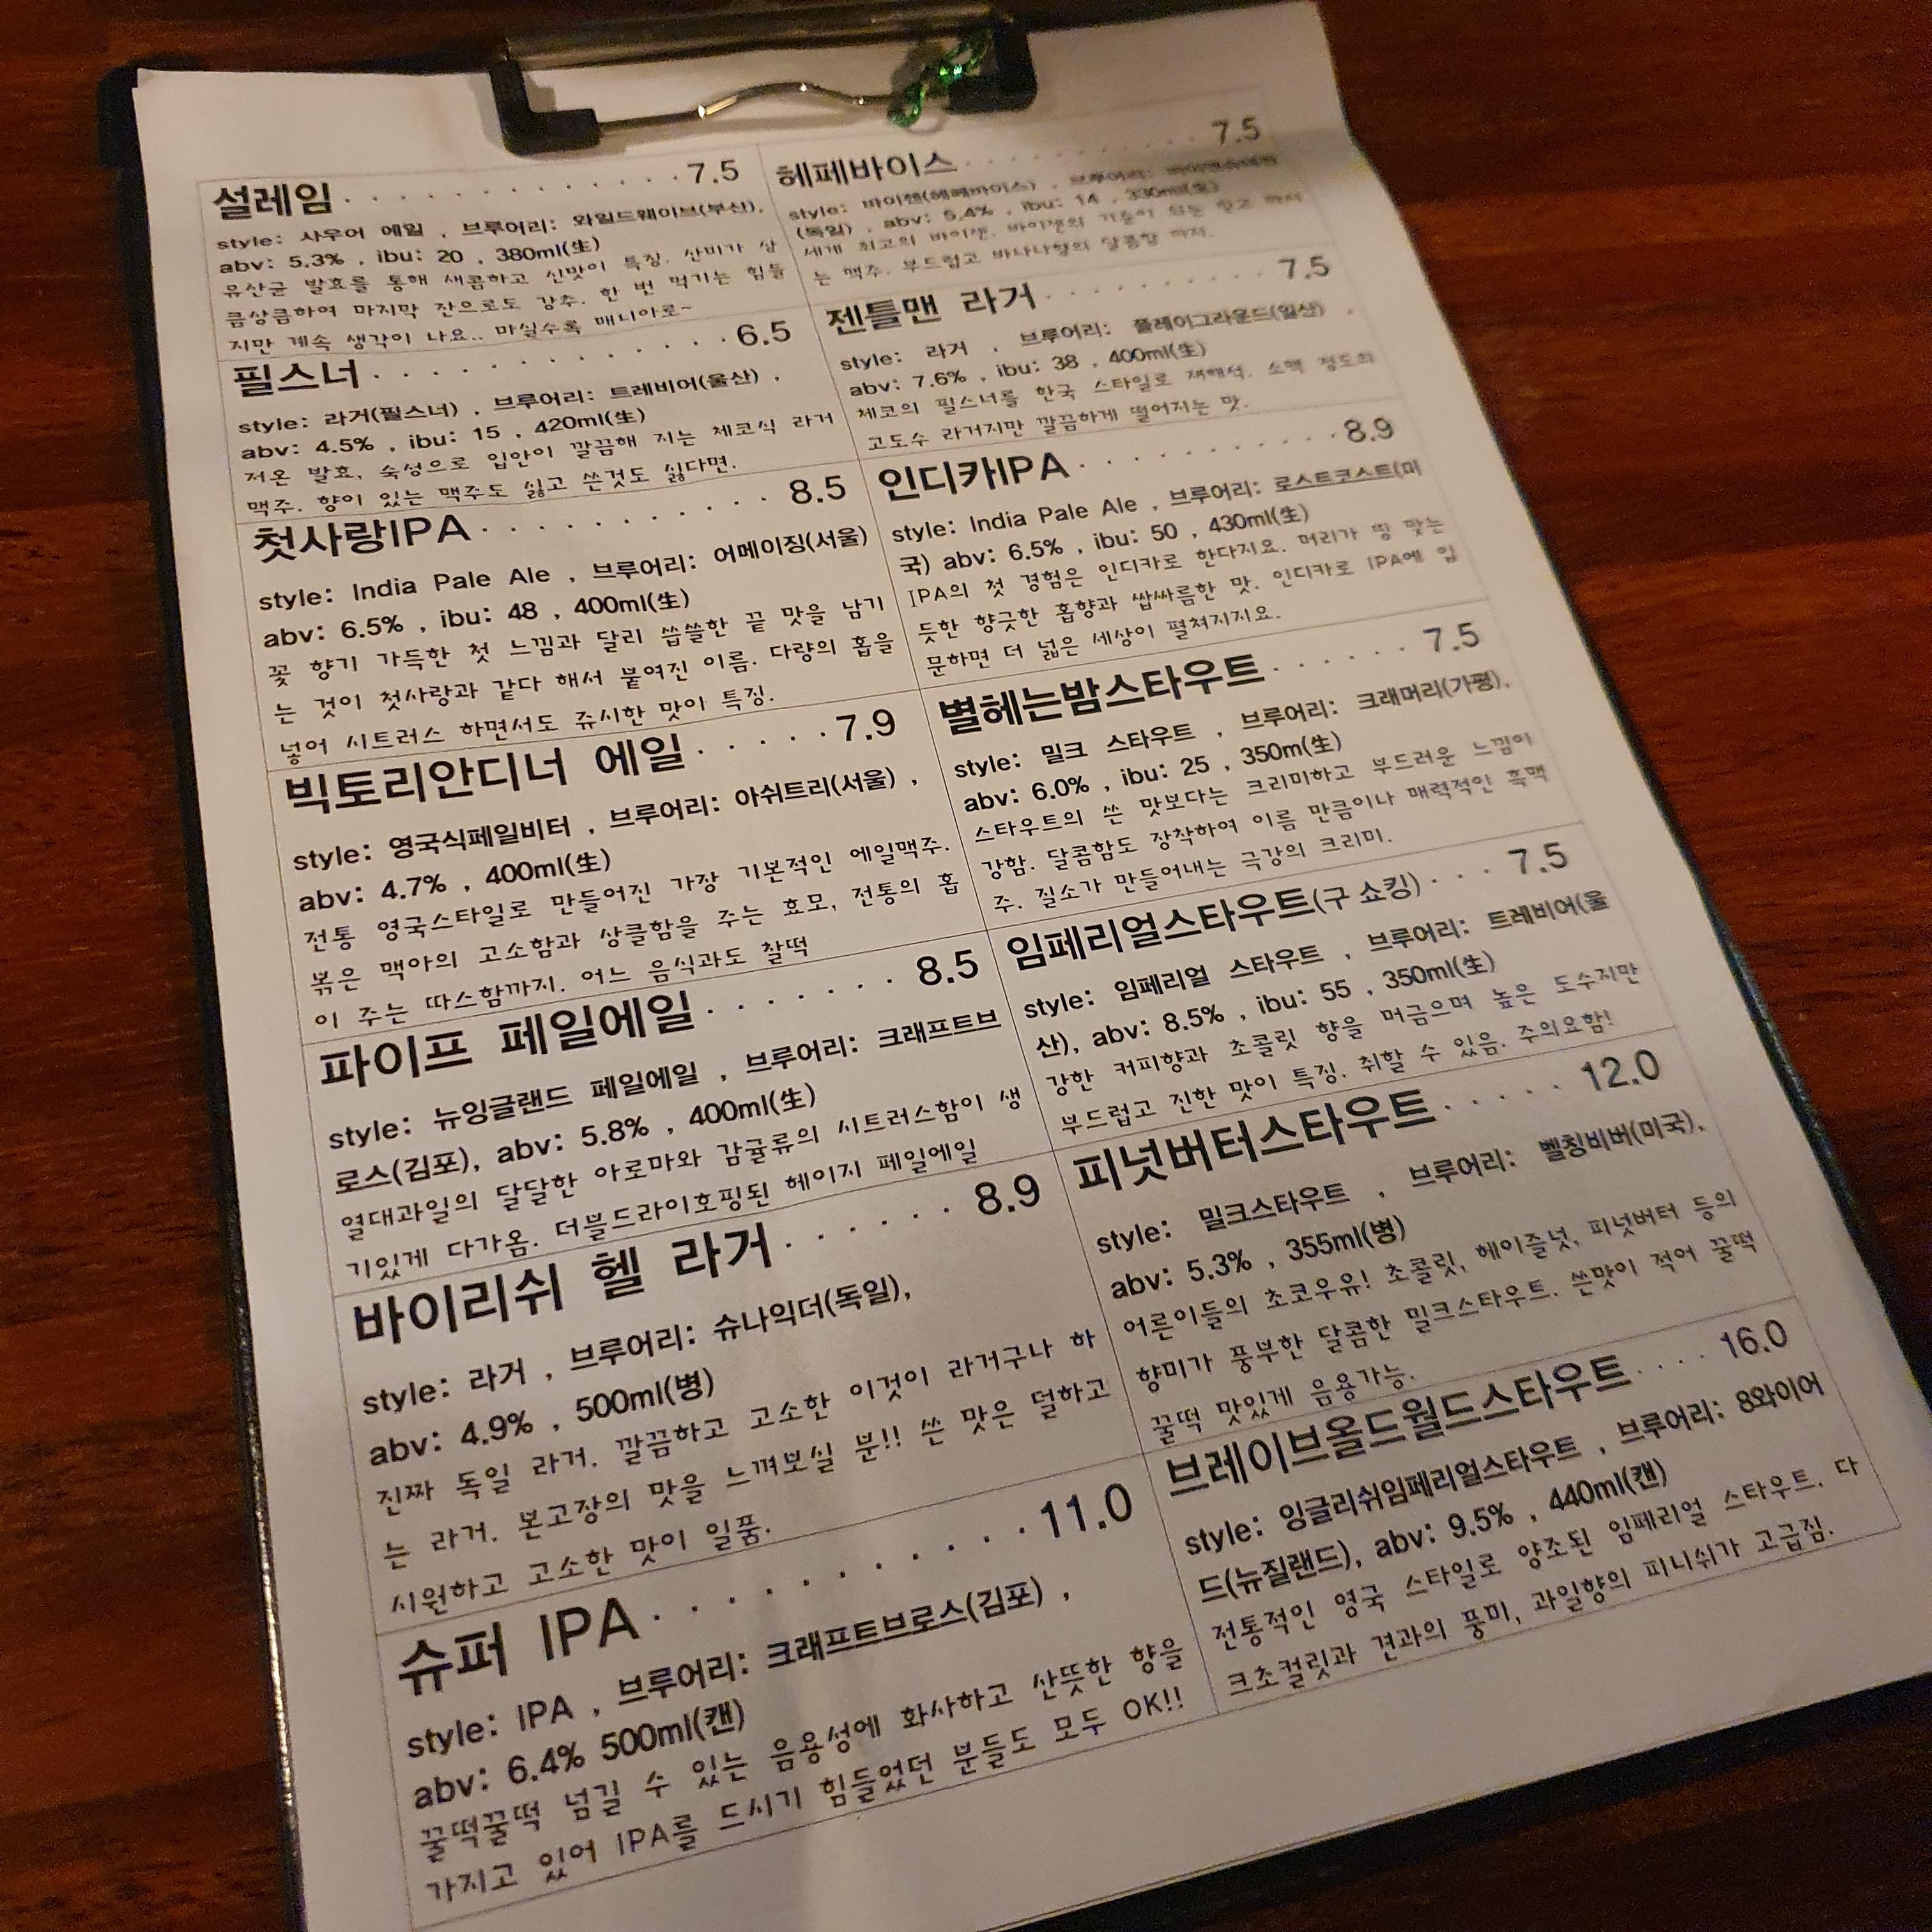 설레임 · · · · · · · · · · · · · 7.5
style: 사우어 에일 , 브루어리: 와일드웨이브(부산),
abv: 5.3% , ibu: 20 , 380ml(生)
유산균 발효를 통해 새콤하고 신맛이 특징. 산미가 상
큼상큼하여 마지막 잔으로도 강추. 한 번 먹기는 힘들
지만 계속 생각이 나요.. 마실수록 매니아로~
필스너 · · · · · · · · · · · · · 6.5
style: 라거(필스너) , 브루어리: 트레비어(울산) ,
abv: 4.5% , ibu: 15 , 420ml(生)
저온 발효, 숙성으로 입안이 깔끔해 지는 체코식 라거
맥주. 향이 있는 맥주도 싫고 쓴것도 싫다면.
첫사랑IPA · · · · · · · · · · 8.5
style: India Pale Ale , 브루어리: 어메이징(서울)
abv: 6.5% , ibu: 48 , 400ml(生)
꽃 향기 가득한 첫 느낌과 달리 씁쓸한 끝 맛을 남기
는 것이 첫사랑과 같다 해서 붙여진 이름. 다량의 홉을
넣어 시트러스 하면서도 쥬시한 맛이 특징.
빅토리안디너 에일 · · · · · 7.9
style: 영국식페일비터 , 브루어리: 아쉬트리(서울) ,
abv: 4.7% , 400ml(生)
전통 영국스타일로 만들어진 가장 기본적인 에일맥주.
볶은 맥아의 고소함과 상큼함을 주는 효모, 전통의 홉
이 주는 따스함까지. 어느 음식과도 찰떡
파이프 페일에일 · · · · · · 8.5
style: 뉴잉글랜드 페일에일 , 브루어리: 크래프트브
로스(김포), abv: 5.8% , 400ml(生)
열대과일의 달달한 아로마와 감귤류의 시트러스함이 생
기있게 다가옴. 더블드라이호핑된 헤이지 페일에일
바이리쉬 헬 라거 · · · · · 8.9
style: 라거 , 브루어리: 슈나익더(독일),
abv: 4.9% , 500ml(병)
진짜 독일 라거. 깔끔하고 고소한 이것이 라거구나 하
는 라거. 본고장의 맛을 느껴보실 분!! 쓴 맛은 덜하고
시원하고 고소한 맛이 일품.
슈퍼 IPA · · · · · · · · · · 11.0
style: IPA , 브루어리: 크래프트브로스(김포) ,
abv: 6.4% 500ml(캔)
꿀떡꿀떡 넘길 수 있는 음용성에 화사하고 산뜻한 향을
가지고 있어 IPA를 드시기 힘들었던 분들도 모두 OK!!
헤페바이스 · · · · · · · · · · · 7.5
style: 바이젠(헤페바이스) , 브루어리:
(독일) , abv: 5.4% , ibu: 14 , 330ml(生)
세계 최고의 바이젠. 바이젠의 기준이 되는 쉽고 마시
는 맥주. 부드럽고 바나나향의 달콤함 까지.
젠틀맨 라거 · · · · · · · · 7.5
style: 라거 , 브루어리: 플레이그라운드(일산) ,
abv: 7.6% , ibu: 38 , 400ml(生)
체코의 필스너를 한국 스타일로 재해석. 소맥 정도의
고도수 라거지만 깔끔하게 떨어지는 맛.
인디카IPA · · · · · · · · · · 8.9
style: India Pale Ale , 브루어리: 로스트코스트(미
국) abv: 6.5% , ibu: 50 , 430ml(生)
IPA의 첫 경험은 인디카로 한다지요. 머리가 띵 맞는
듯한 향긋한 홉향과 쌉싸름한 맛. 인디카로 IPA에 입
문하면 더 넓은 세상이 펼쳐지지요.
별헤는밤스타우트 · · · · · · 7.5
style: 밀크 스타우트 , 브루어리: 크래머리(가평),
abv: 6.0% , ibu: 25 , 350m(生)
스타우트의 쓴 맛보다는 크리미하고 부드러운 느낌이
강함. 달콤함도 장착하여 이름 만큼이나 매력적인 흑맥
주. 질소가 만들어내는 극강의 크리미.
임페리얼스타우트(구 쇼킹) · · · 7.5
style: 임페리얼 스타우트 , 브루어리: 트레비어(울
산), abv: 8.5% , ibu: 55 , 350ml(生)
강한 커피향과 초콜릿 향을 머금으며 높은 도수지만
부드럽고 진한 맛이 특징. 취할 수 있음. 주의요함!
피넛버터스타우트 · · · · · 12.0
style: 밀크스타우트 , 브루어리: 벨칭비버(미국),
abv: 5.3% , 355ml(병)
어른이들의 초코우유! 초콜릿, 헤이즐넛, 피넛버터 등의
향미가 풍부한 달콤한 밀크스타우트. 쓴맛이 적어 꿀떡
꿀떡 맛있게 음용가능.
브레이브올드월드스타우트 · · · · 16.0
style: 잉글리쉬임페리얼스타우트 , 브루어리: 8와이어
드(뉴질랜드), abv: 9.5% , 440ml(캔)
전통적인 영국 스타일로 양조된 임페리얼 스타우트. 다
크초컬릿과 견과의 풍미, 과일향의 피니쉬가 고급짐.